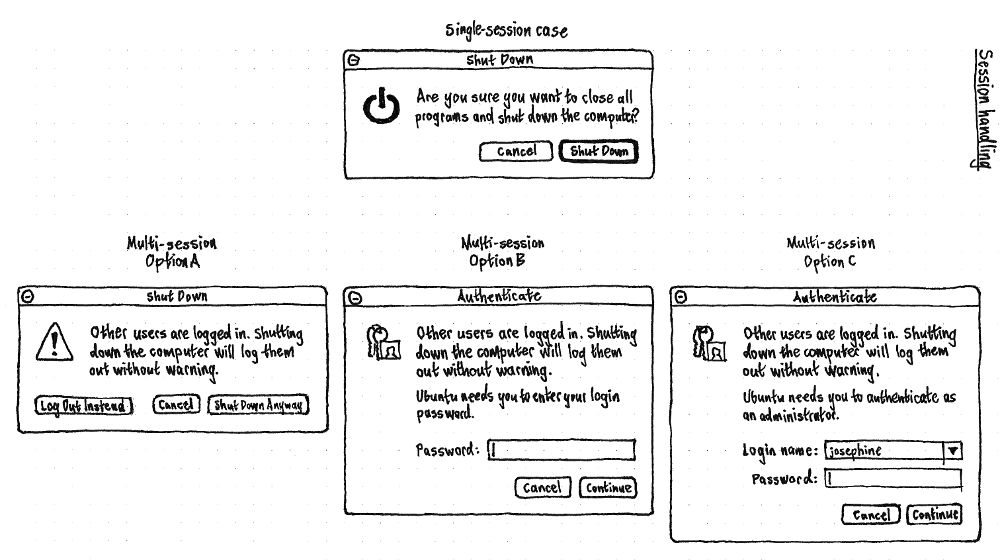 Single-session case
Shut Down
Are you sure you want to close all
programs and shut down the computer?
Cancel
Shut Down
Session handling
Multi-session
Option A
Shut Down
Other users are logged in. Shutting
down the computer will log them
out without warning.
Log Out Instead
Cancel
Shut Down Anyway
Multi-session
Option B
Authenticate
Other users are logged in. Shutting
down the computer will log them
out without warning.
Ubuntu needs you to enter your login
password.
Password:
Cancel
Continue
Multi-session
Option C
Authenticate
Other users are logged in. Shutting
down the computer will log them
out without warning.
Ubuntu needs you to authenticate as
an administrator.
Login name: josephine
Password:
Cancel
Continue